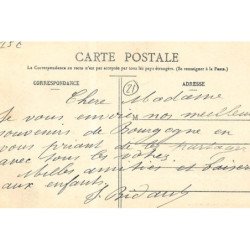 CARTE POSTALE
La Correspondance au recto n'est pas acceptée par tous les pays étrangers. (Se renseigner à la Poste.)
CORRESPONDANCE
ADRESSE
21
Chere Madame
Je vous envoie nos meilleurs
souvenirs de Bourgogne en
vous priant de les partager
avec tous les vôtres.
Milles amitiés et baisers
aux enfants